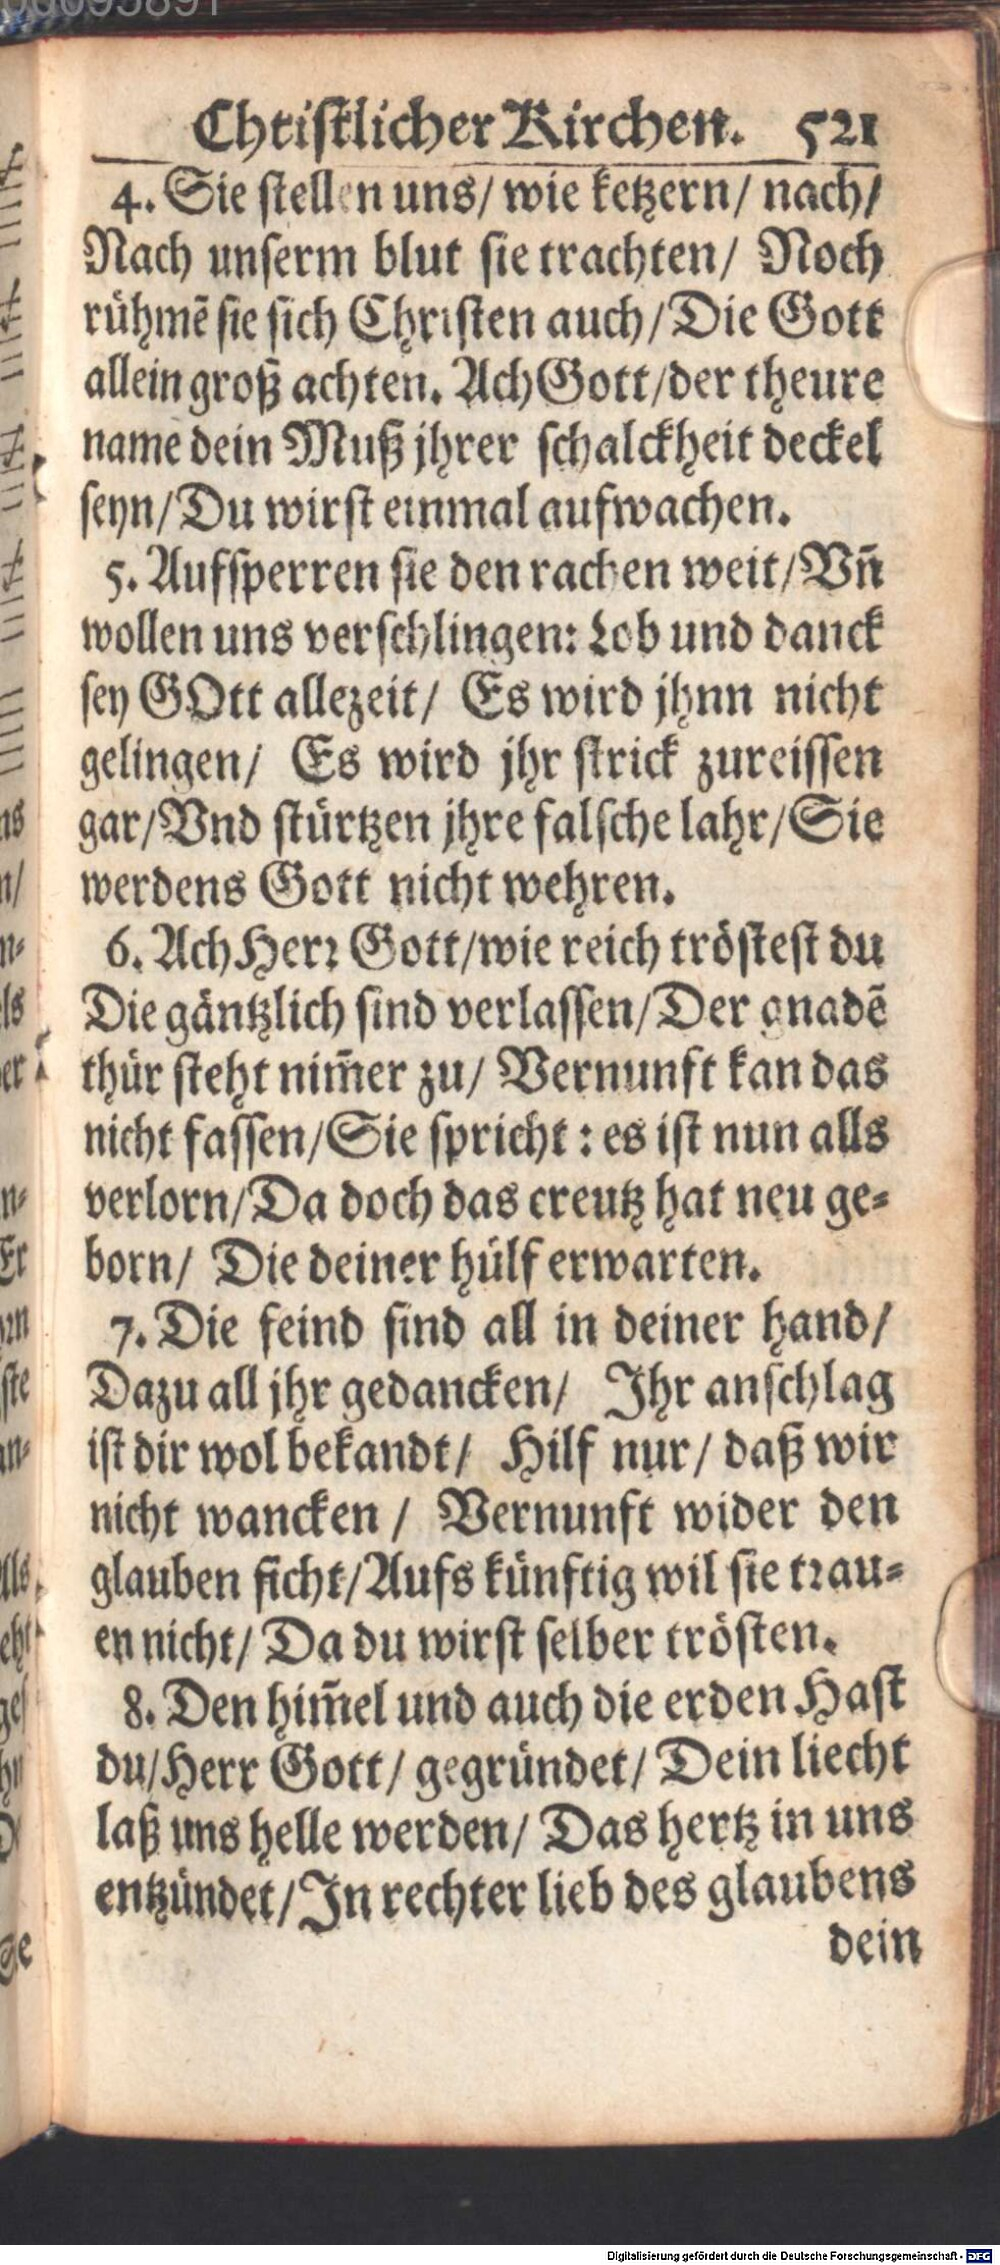 Christlicher Kirchen. 521
4. Sie stellen uns/ wie ketzern/ nach/
Nach unserm blut sie trachten/ Noch
rühmẽ sie sich Christen auch/Die Gott
allein groß achten. Ach Gott/der theure
name dein Muß jhrer schalckheit deckel
seyn/Du wirst einmal aufwachen.
5. Aufsperren sie den rachen weit/Vñ
wollen uns verschlingen: Lob und danck
sey GOtt allezeit/ Es wird jhnn nicht
gelingen/ Es wird jhr strick zureissen
gar/Vnd stürtzen jhre falsche lahr/Sie
werdens Gott nicht wehren.
6. Ach Herꝛ Gott/wie reich tröstest du
Die gäntzlich sind verlassen/Der gnadẽ
thür steht nim̃er zu/ Vernunft kan das
nicht fassen/Sie spricht: es ist nun alls
verlorn/Da doch das creutz hat neu ge-
born/ Die deiner hülf erwarten.
7. Die feind sind all in deiner hand/
Dazu all jhr gedancken/ Jhr anschlag
ist dir wol bekandt/ Hilf nur/ daß wir
nicht wancken/ Vernunft wider den
glauben ficht/Aufs künftig wil sie trau-
en nicht/ Da du wirst selber trösten.
8. Den him̃el und auch die erden Hast
du/Herr Gott/ gegründet/ Dein liecht
laß uns helle werden/ Das hertz in uns
entzündet/Jn rechter lieb des glaubens
dein
Digitalisierung gefördert durch die Deutsche Forschungsgemeinschaft - DFG